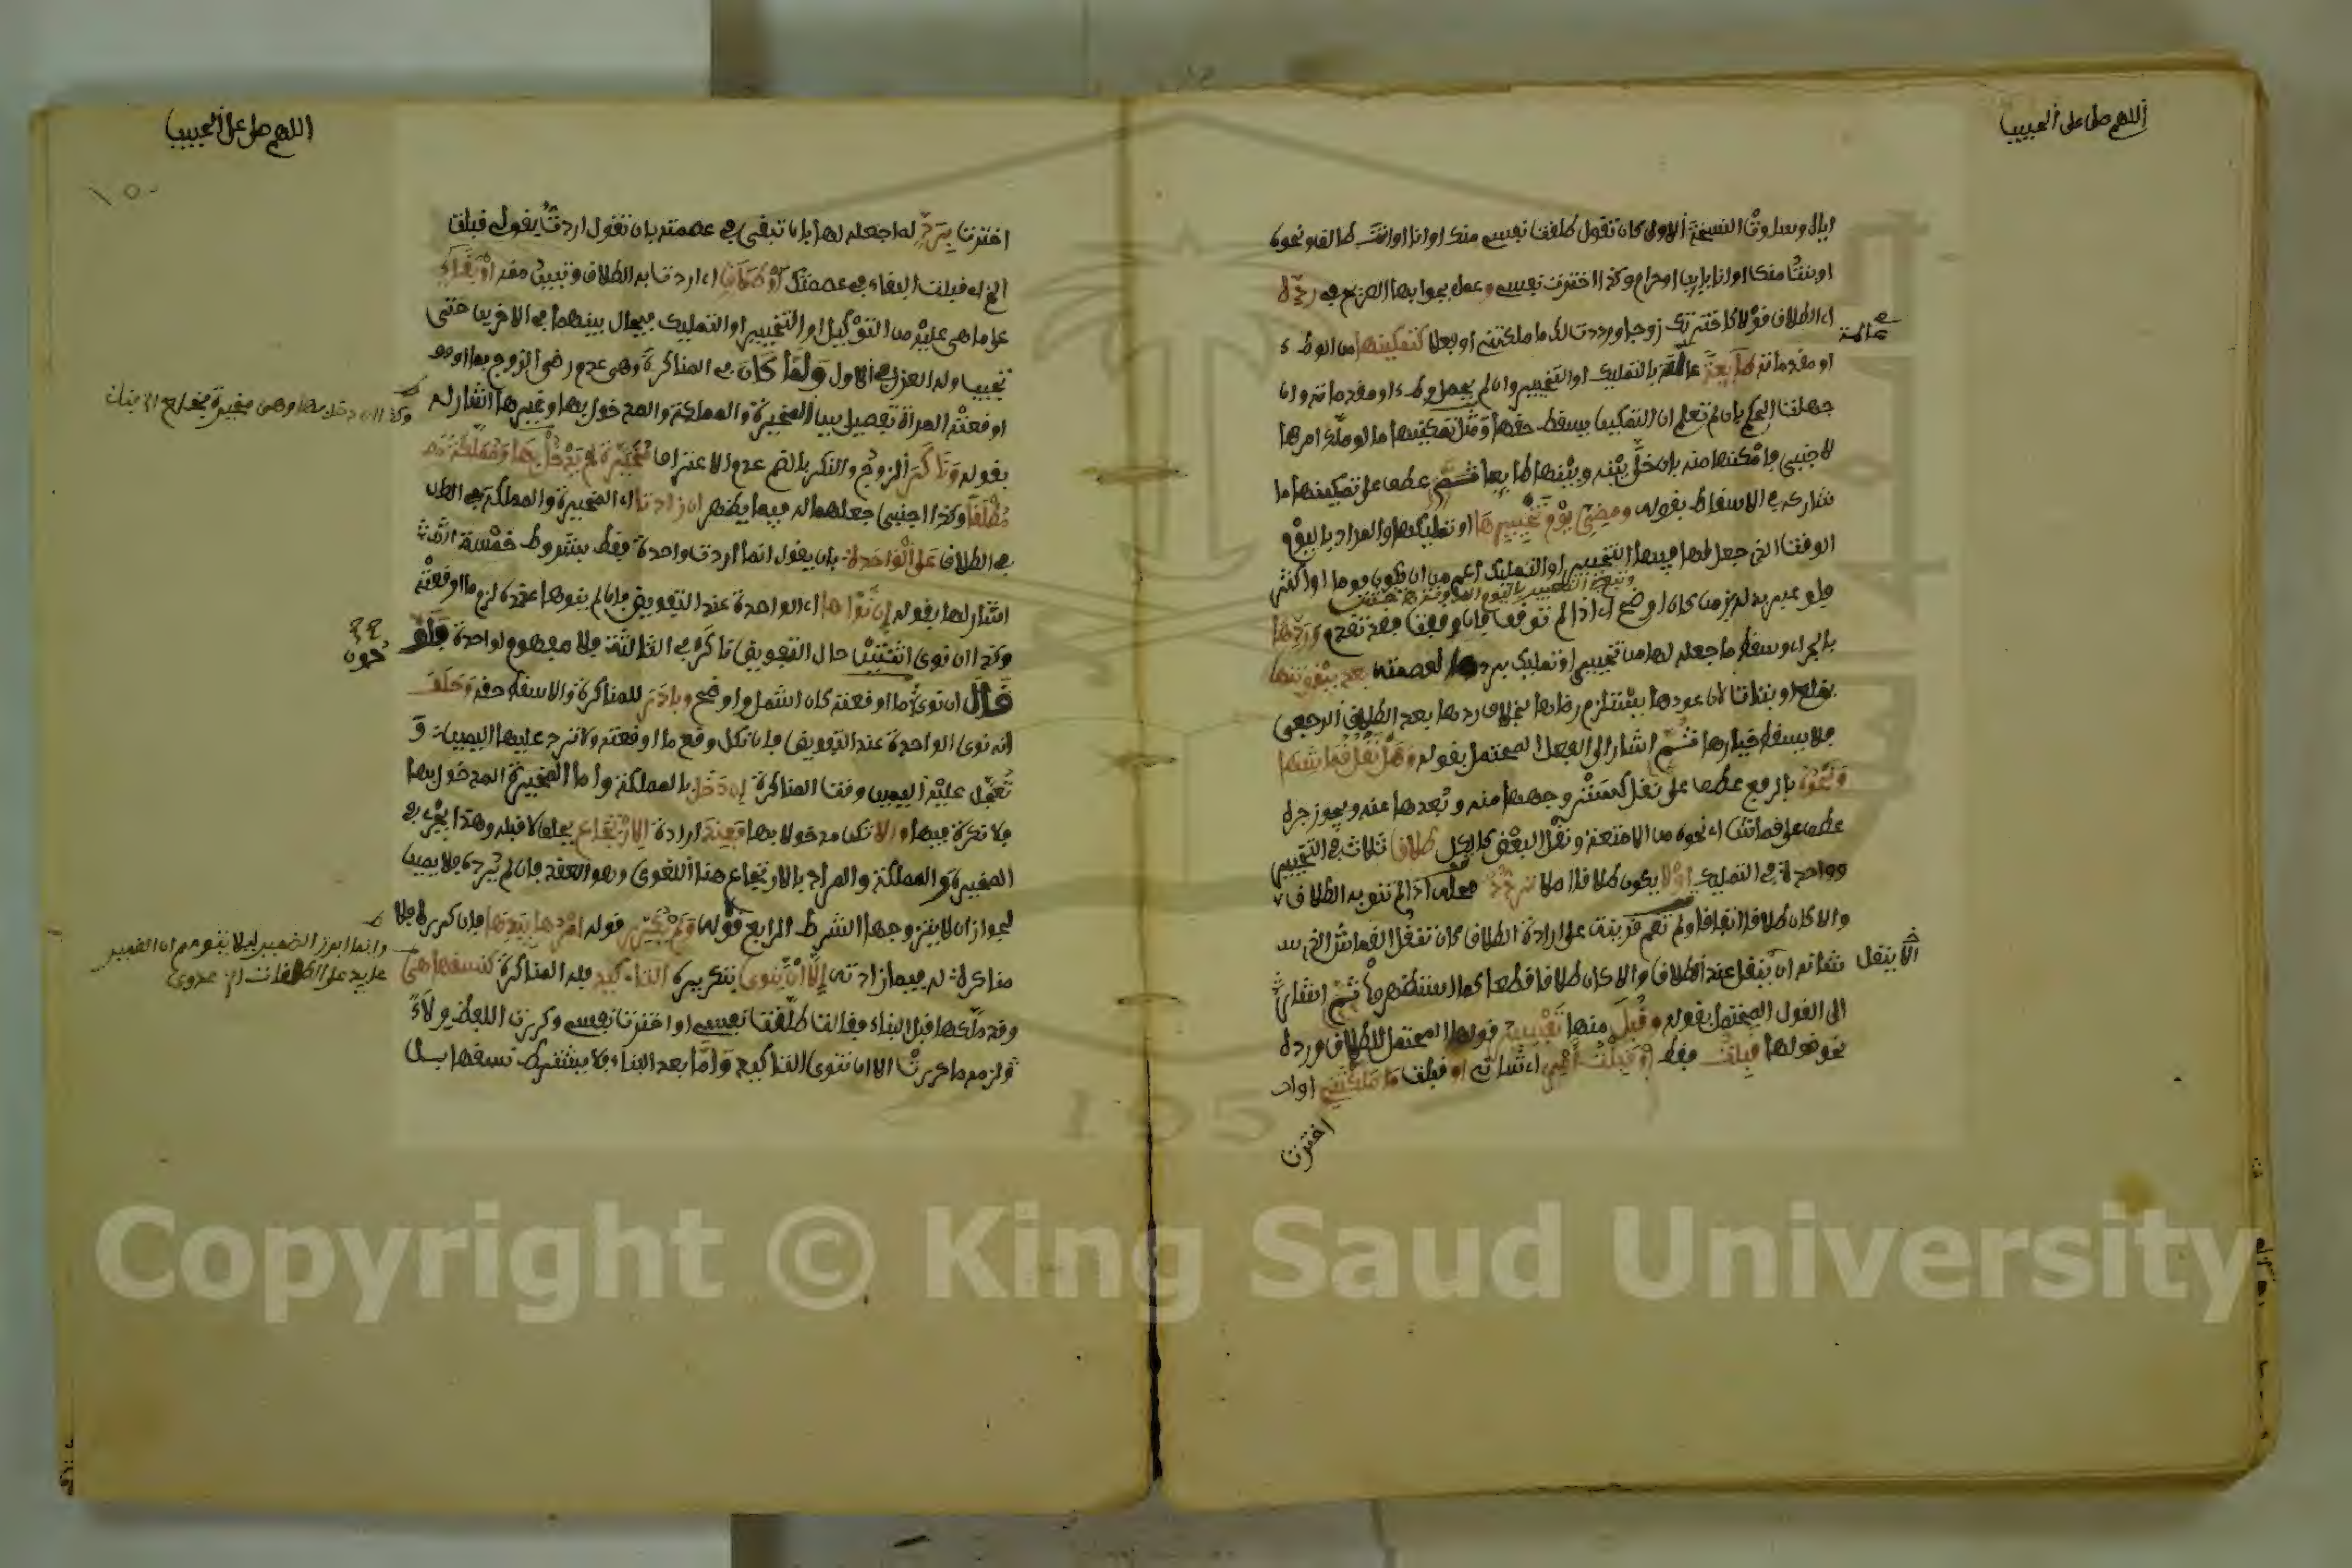 اللهم صل على الحبيب
كان تقول طلقت نفسي منك او انا او انت طالق ونحوه
او بنت منك او انا باين او حرام وكذا اخترت نفسي وعمل بجوابها الصريح في ردّه
اي الطلاق قولا كاخترتك زوجا ورددت لك ما ملكتني او فعلا كتمكينها من الوطء
عالمة
او مقدماته طايعة عالمة بالتمليك او التخيير وان لم يحصل وطء او مقدماته وان
جهلت الحكم بان لم تعلم ان التمكين يسقط حقها ومثل تمكينها ما لو ملك امرها
لاجنبي وامكنها منه بان خلى بينه وبينها طايعا ثم عطف على تمكينها ما
شاركه في الاسقاط بقوله ومضي يوم تخييرها او تمليكها والمراد باليوم
الوقت الذي جعل لها فيها التخيير او التمليك اعم من ان يكون يوما او اكثر
فلو عبر بدله بزمن كان اوضح اي اذا لم توقف فان وقفت فقد تقدم وردها
بالجر اي وسقط ما جعله لها من تخيير او تمليك بردها لعصمته بعد بينونتها
بخلع او بتات لان عودها يستلزم رضاها بخلاف ردها بعد الطلاق الرجعي
فلا يسقط خيارها ثم اشار الى الفعل المحتمل بقوله وهل نقل قماشها
ونحوه بالرفع عطف على نقل كستر وجهها منه وبعدها عنه ويجوز جره
عطف على قماشها اي نحوه من الامتعة ونقل البعض كالكل طلاق ثلاث في التخيير
وواحدة في التمليك او لا يكون طلاقا اصلا تردد محله اذا لم تنو به الطلاق
والا كان طلاقا اتفاقا ولم تقم قرينة على ارادة الطلاق كان تنقل القماش الذي
الا ينقل
شانه ان ينقل عند الطلاق والا كان طلاقا قطعا كما استظهروا ثم اشار
الى القول المحتمل بقوله وقبل منها تفسير قولها المحتمل للطلاق ورده
نحو قولها قبلت فقط او قبلت امري اي شاني او قبلت ما ملكتني او
اخترت
اللهم صل على الحبيب
١٥٠
اخترت بردّ له اجعله لها بان تبقى في عصمته بان تقول اردت بقولي قبلت
الخ اي قبلت البقاء في عصمتك او طلاق اي اردت به الطلاق وتبين منه او بقاء
على ما هي عليه من التوكيل او التخيير او التمليك فيحال بينهما في الاخرين حتى
تجيب وله العزل في الاول ولما كان في المناكرة وهي عدم رضى الزوج بما
اوقعته المراة تفصيل بين المخيرة والمملكة والمدخول بها وغيرها اشار له
بقوله وناكر الزوج والنكر بالضم عدم الاعتراف مخيرة لم يدخل بها ومملكة
مطلقا وكذا اجنبي جعلهما له فيما يظهر ان زادتا اي المخيرة والمملكة
في الطلاق على الواحدة بان يقول انما اردت واحدة فقط بشروط خمسة
اشار لها بقوله ان نواها اي الواحدة عند التفويض فان لم ينوها عنده لزم ما اوقعته
وكذا ان نوى اثنتين حال التفويض ناكر في الثالثة فلا مفهوم لواحدة فلو
قال ان نوى ما اوقعته كان اشمل واوضح وبادر للمناكرة والا سقط حقه وحلف
انه نوى الواحدة عند التفويض فان نكل وقع ما اوقعته ولا ترد عليها اليمين و
تعجل عليه اليمين وقت المناكرة ان دخل بالمملكة واما المخيرة المدخول بها
فلا نكرة فيها والا تكن مدخولا بها فعند ارادة الارتجاع يحلف لا قبله وهذا يجري في
المخيرة والمملكة والمراد بالارتجاع هنا اللغوي وهو العقد فان لم يرده فلا يمين
لجواز ان لا يتزوجها الشرط الرابع قوله ولم يكرر قوله امرها بيدها فان كرره فلا
وانما ابرز الضمير ليلا يتوهم ان الضمير
عايد على الطلقات اهـ عدوي
مناكرة له فيما زادته الا ان ينوي بتكريره التاكيد فله المناكرة كنسقها هي
وقد ملكها قبل البناء فقالت طلقت نفسي او اخترت نفسي وكررت اللفظ ولاء
ولزمه ما كررت الا ان تنوي التاكيد واما بعد البناء فلا يشترط نسقها
Copyright © King Saud University